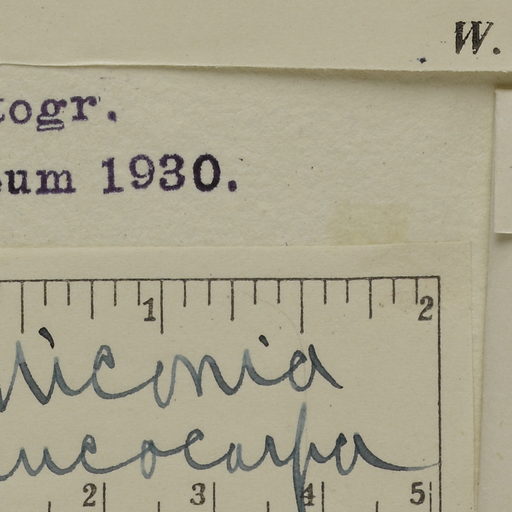 W.
togr.
eum 1930.
1 2
Miconia
ucocarpa
2 3 4 5